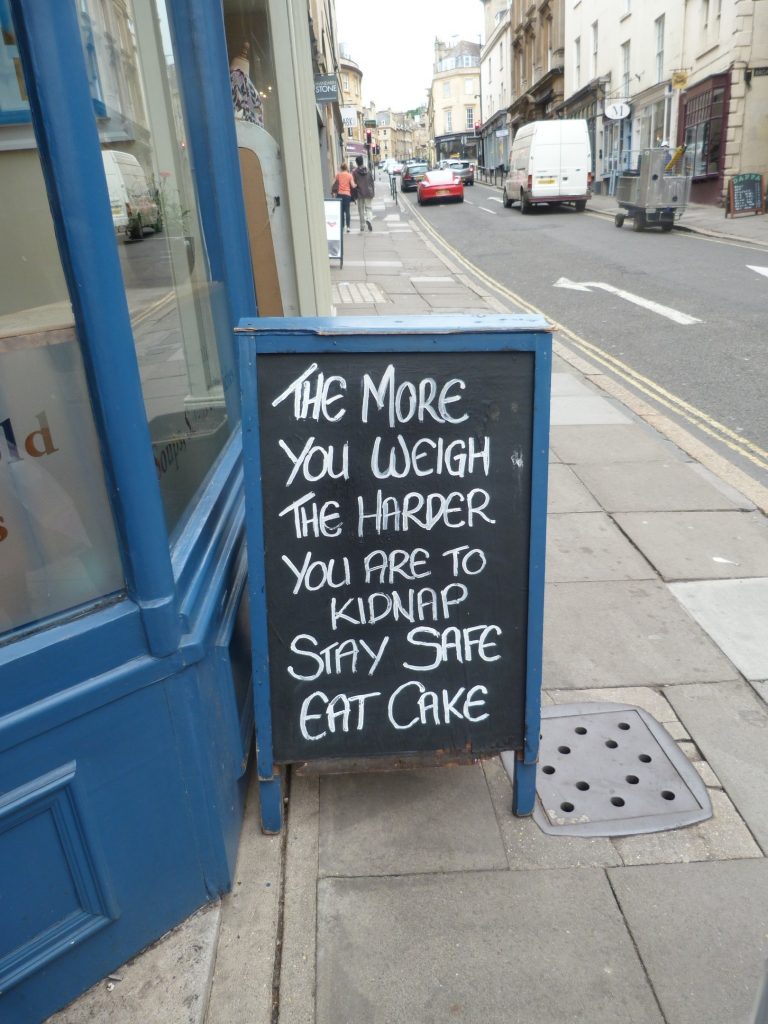 THE MORE
YOU WEIGH
THE HARDER
YOU ARE TO
KIDNAP
STAY SAFE
EAT CAKE
STONE